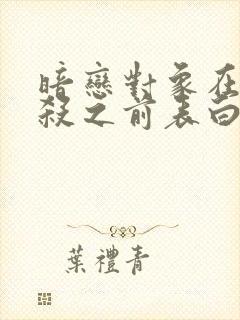 暗戀對象在
殺之前表白
葉禮青